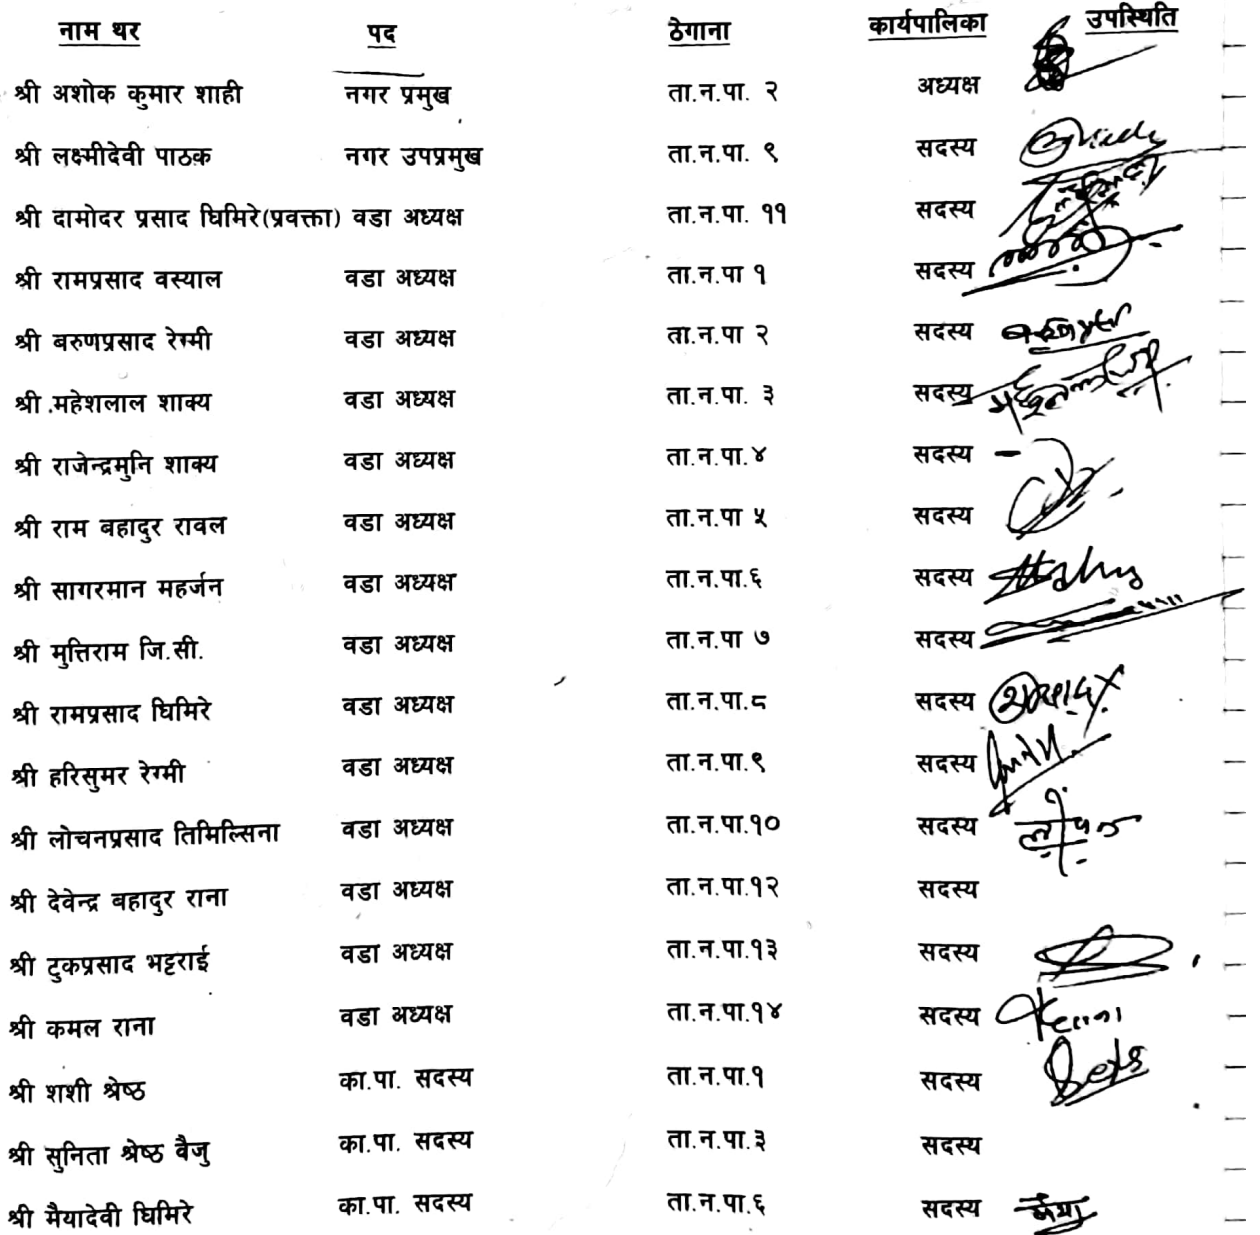 नाम थर पद ठेगाना कार्यपालिका उपस्थिति
श्री अशोक कुमार शाही नगर प्रमुख ता.न.पा. २ अध्यक्ष
श्री लक्ष्मीदेवी पाठक नगर उपप्रमुख ता.न.पा. ९ सदस्य
श्री दामोदर प्रसाद घिमिरे(प्रवक्ता) वडा अध्यक्ष ता.न.पा. ११ सदस्य
श्री रामप्रसाद वस्याल वडा अध्यक्ष ता.न.पा १ सदस्य
श्री बरुणप्रसाद रेग्मी वडा अध्यक्ष ता.न.पा २ सदस्य
श्री महेशलाल शाक्य वडा अध्यक्ष ता.न.पा. ३ सदस्य
श्री राजेन्द्रमुनि शाक्य वडा अध्यक्ष ता.न.पा.४ सदस्य
श्री राम बहादुर रावल वडा अध्यक्ष ता.न.पा ५ सदस्य
श्री सागरमान महर्जन वडा अध्यक्ष ता.न.पा.६ सदस्य
श्री मुत्तिराम जि.सी. वडा अध्यक्ष ता.न.पा ७ सदस्य
श्री रामप्रसाद घिमिरे वडा अध्यक्ष ता.न.पा.८ सदस्य
श्री हरिसुमर रेग्मी वडा अध्यक्ष ता.न.पा.९ सदस्य
श्री लोचनप्रसाद तिमिल्सिना वडा अध्यक्ष ता.न.पा.१० सदस्य
श्री देवेन्द्र बहादुर राना वडा अध्यक्ष ता.न.पा.१२ सदस्य
श्री टुकप्रसाद भट्टराई वडा अध्यक्ष ता.न.पा.१३ सदस्य
श्री कमल राना वडा अध्यक्ष ता.न.पा.१४ सदस्य
श्री शशी श्रेष्ठ का.पा. सदस्य ता.न.पा.१ सदस्य
श्री सुनिता श्रेष्ठ वैजु का.पा. सदस्य ता.न.पा.३ सदस्य
श्री मैयादेवी घिमिरे का.पा. सदस्य ता.न.पा.६ सदस्य